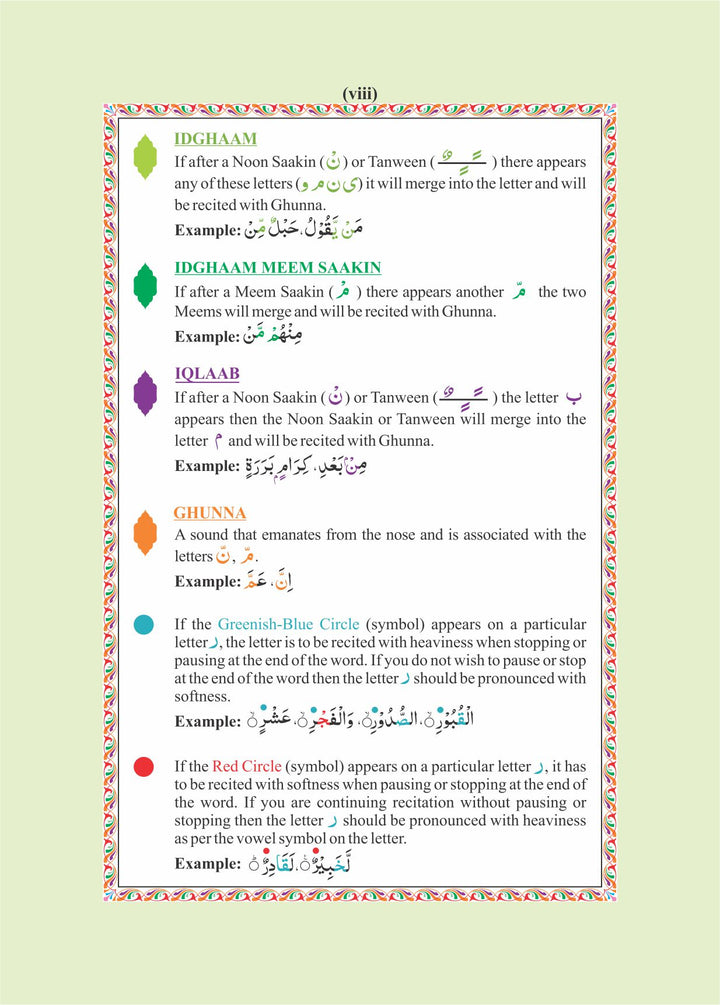 (viii)
IDGHAAM
If after a Noon Saakin (نْ) or Tanween (ـًـٍـٌ) there appears
any of these letters (ی ن م و) it will merge into the letter and will
be recited with Ghunna.
Example: مَنْ يَّقُوْلُ، حَبْلٌ مِّنْ
IDGHAAM MEEM SAAKIN
If after a Meem Saakin (مْ) there appears another مّ the two
Meems will merge and will be recited with Ghunna.
Example: مِنْهُمْ مَّنْ
IQLAAB
If after a Noon Saakin (نْ) or Tanween (ـًـٍـٌ) the letter ب
appears then the Noon Saakin or Tanween will merge into the
letter م and will be recited with Ghunna.
Example: مِنْۢ بَعْدِ، كِرَامٍۭ بَرَرَةٍ
GHUNNA
A sound that emanates from the nose and is associated with the
letters نّ, مّ.
Example: اِنَّ، عَمَّ
If the Greenish-Blue Circle (symbol) appears on a particular
letter ر, the letter is to be recited with heaviness when stopping or
pausing at the end of the word. If you do not wish to pause or stop
at the end of the word then the letter ر should be pronounced with
softness.
Example: الْقُبُوْرِ، الصُّدُوْرِ، وَالْفَجْرِ، عَشْرٍ
If the Red Circle (symbol) appears on a particular letter ر, it has
to be recited with softness when pausing or stopping at the end of
the word. If you are continuing recitation without pausing or
stopping then the letter ر should be pronounced with heaviness
as per the vowel symbol on the letter.
Example: لَّخَبِيْرٌ، لَقَادِرٌ